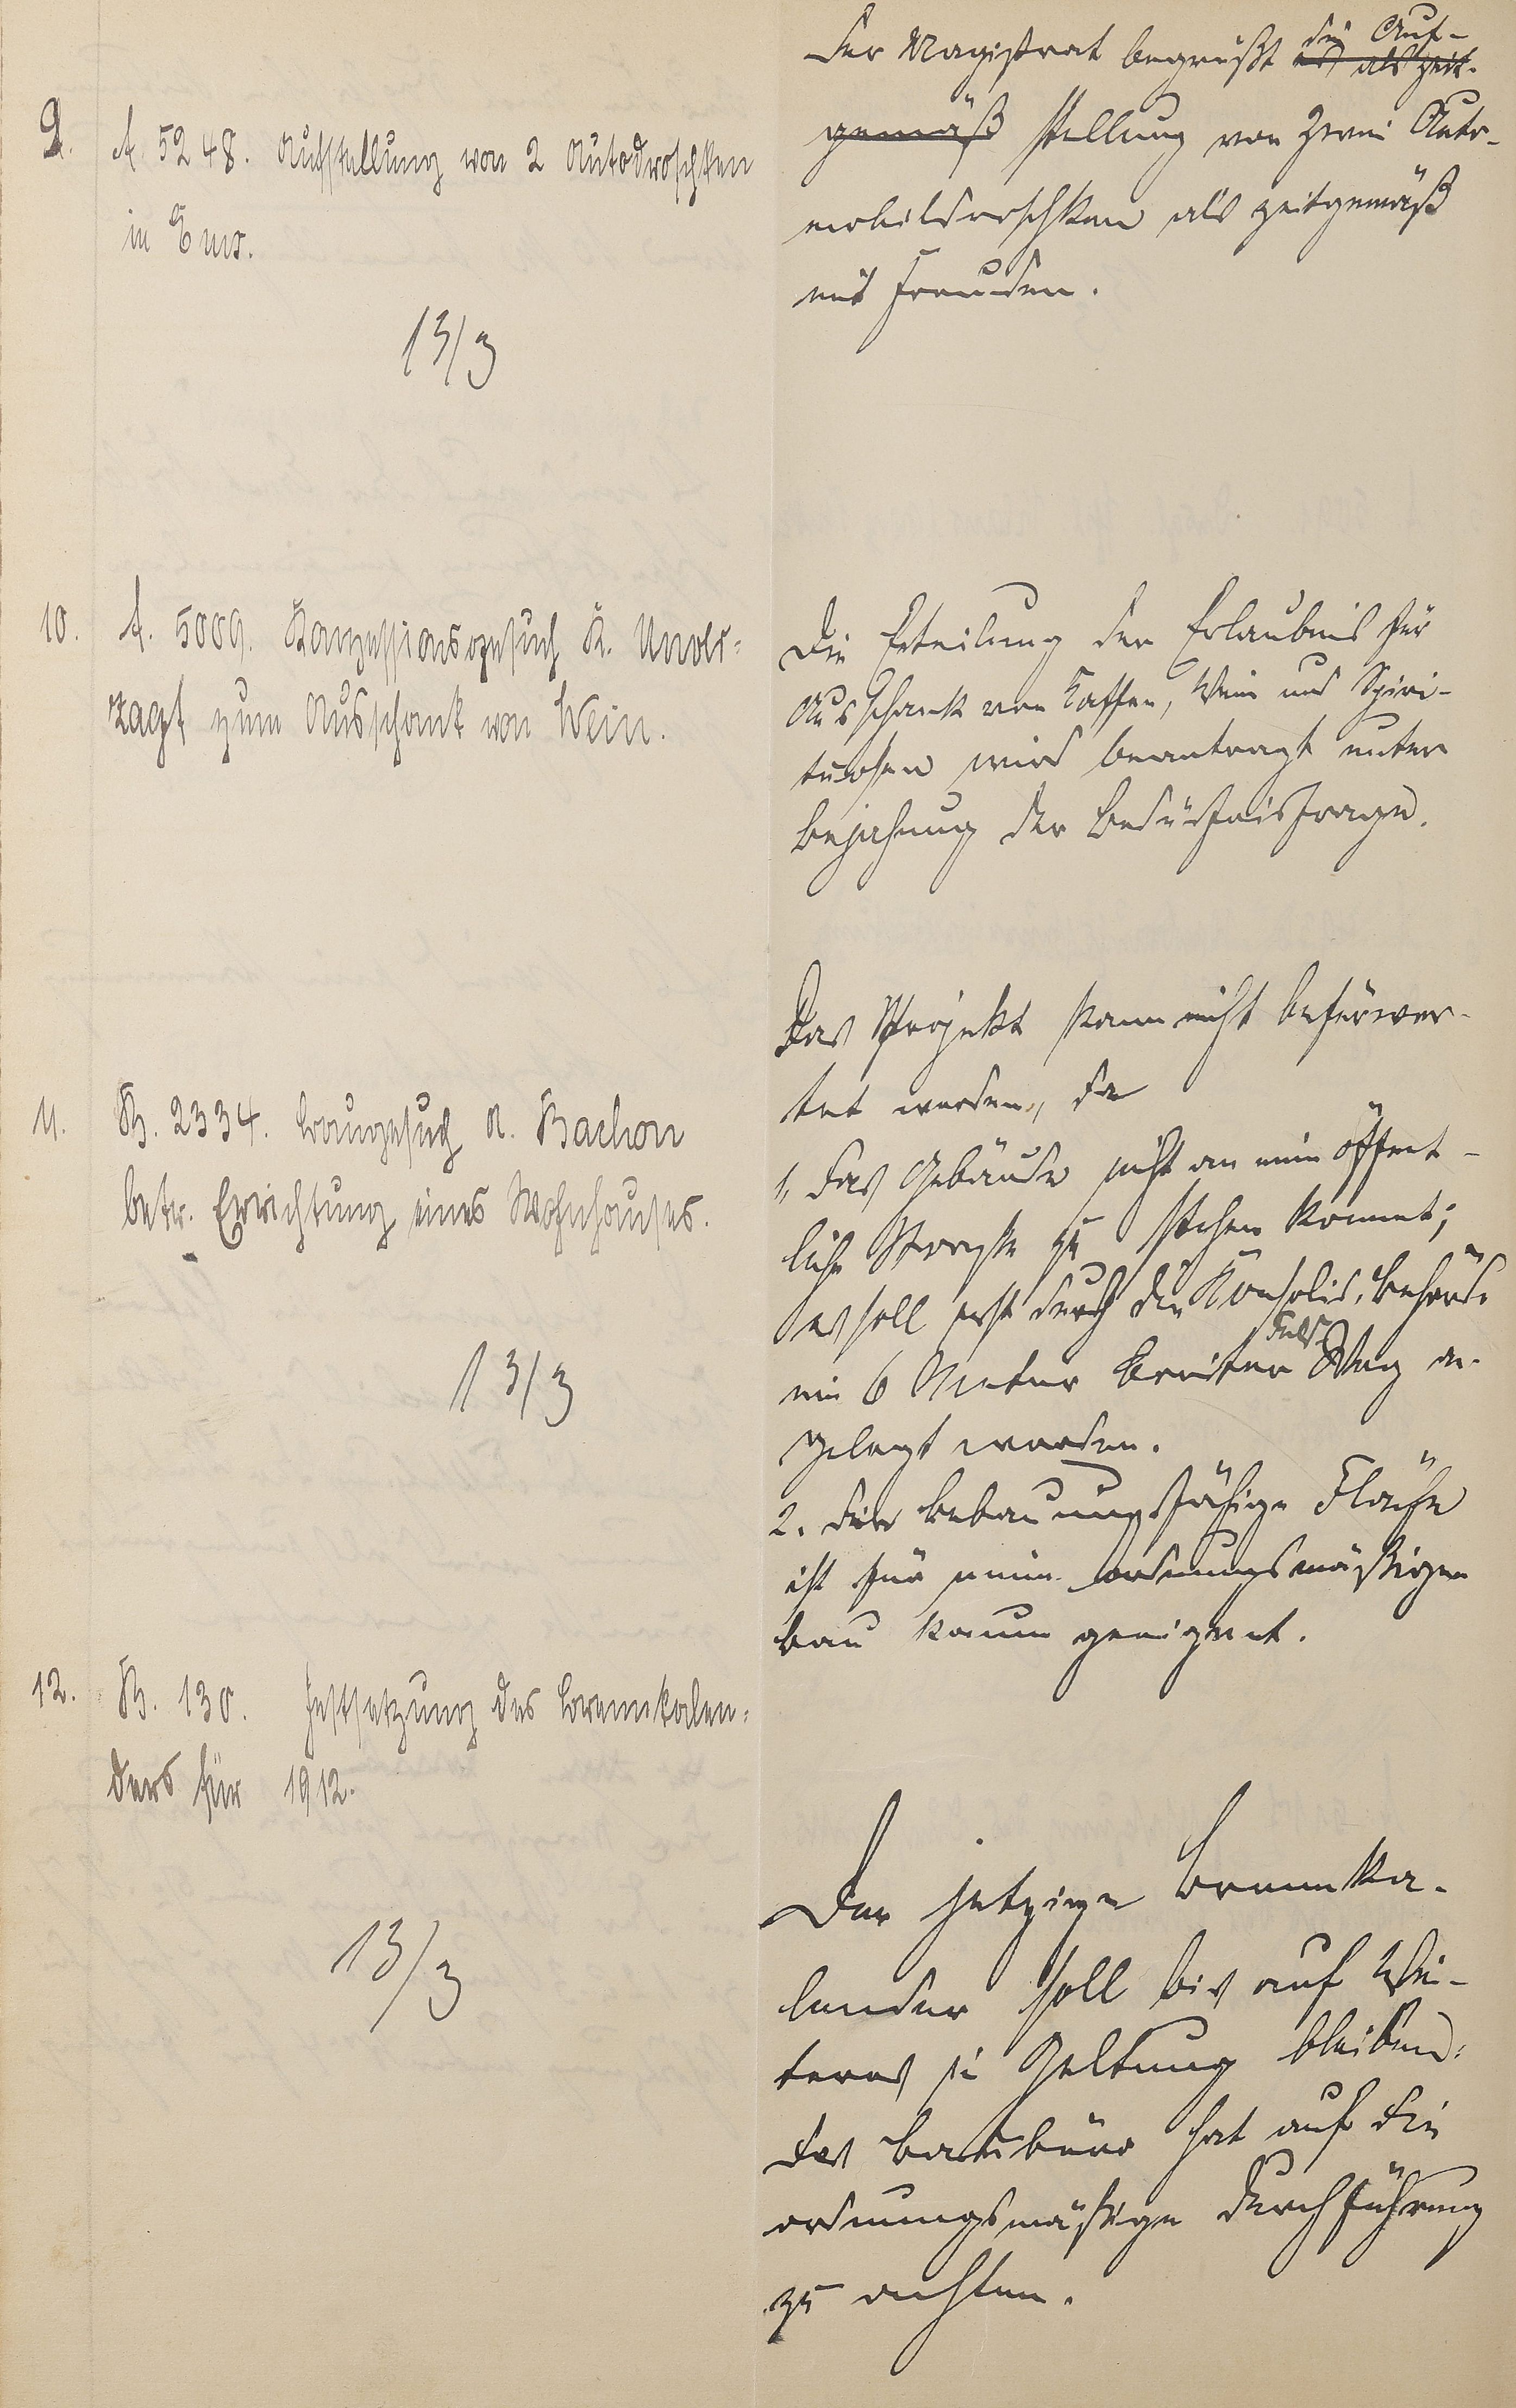 9. A. 5248. Aufstellung von 2 Autodroschken
in Ems.
13/3
Der Magistrat begrüßt die Auf-
es als zeit-
gemäß stellung von zwei Auto-
mobildroschken als zeitgemäß
mit Freuden.
10. A. 5009. Konzessionsgesuch K. Unver-
zagt zum Ausschank von Wein.
Die Erteilung der Erlaubnis für
Ausschank von Kaffee, Wein und Spiri-
tuosen wird beantragt unter
Bejahung der Bedürfnisfrage.
11. B. 2334. Baugesuch A. Bachon
betr. Errichtung eines Wohnhauses.
13/3
Das Projekt kann nicht befürwor-
tet werden, da
1, das Gebäude nicht an eine öffent-
liche Straße zu stehen kommt;
es soll erst durch die Konsolid. Behörde
ein 6 Meter breiter Feld Weg an-
gelegt werden.
2. die bebauungsfähige Fläche
ist für einen ordnungsmäßigen
Bau kaum geeignet.
12. B. 130. Festsetzung des Brennkalen-
ders für 1912.
13/3
Der jetzige Brennka-
lender soll bis auf Wei-
teres in Geltung bleiben.
Das Baubüro hat auf die
ordnungsmäßige Durchführung
zu achten.